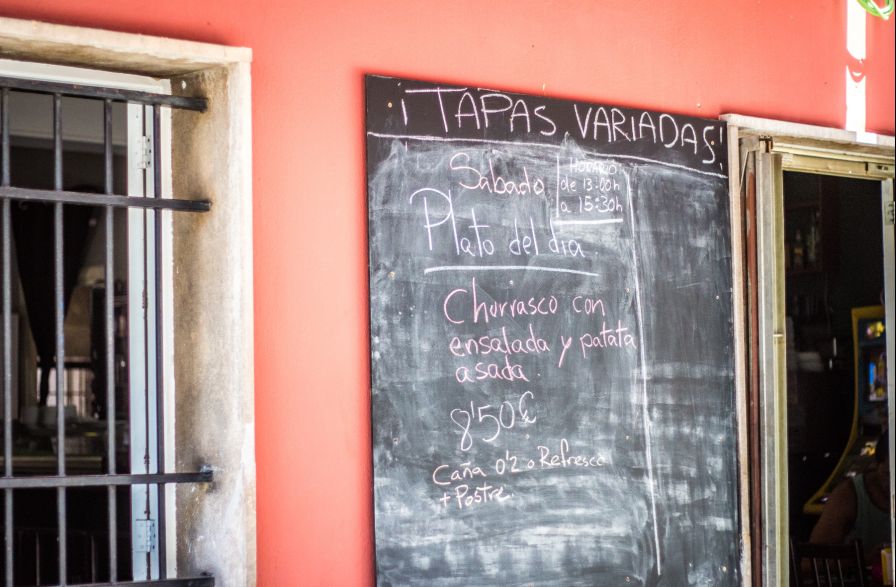 ¡TAPAS VARIADAS!
Sábado
HORARIO
de 13:00h
a 15:30h
Plato del día
Churrasco con
ensalada y patata
asada.
8'50€
Caña 0'2 o Refresco
+ Postre.